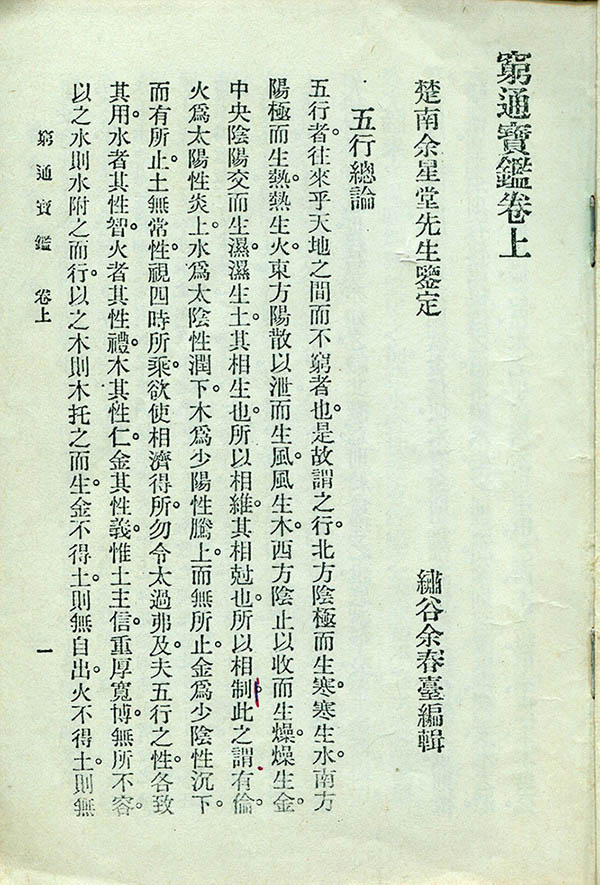 窮通寶鑑卷上
楚南余星堂先生鑒定
繡谷余春臺編輯
五行總論
五行者往來乎天地之間而不窮者也。是故謂之行。北方陰極而生寒。寒生水。南方
陽極而生熱。熱生火。東方陽散以泄而生風。風生木。西方陰止以收而生燥。燥生金。
中央陰陽交而生濕。濕生土。其相生也。所以相維。其相尅也。所以相制。此之謂有倫。
火爲太陽性炎上。水爲太陰性潤下。木爲少陽性騰上。而無所止。金爲少陰性沉下。
而有所止。土無常性。視四時所乘。欲使相濟得所。勿令太過弗及。夫五行之性。各致
其用。水者其性智。火者其性禮。木其性仁。金其性義。惟土主信。重厚寬博。無所不容。
以之水。則水附之而行。以之木。則木托之而生。金不得土。則無自出。火不得土。則無
窮通寶鑑 卷上 一